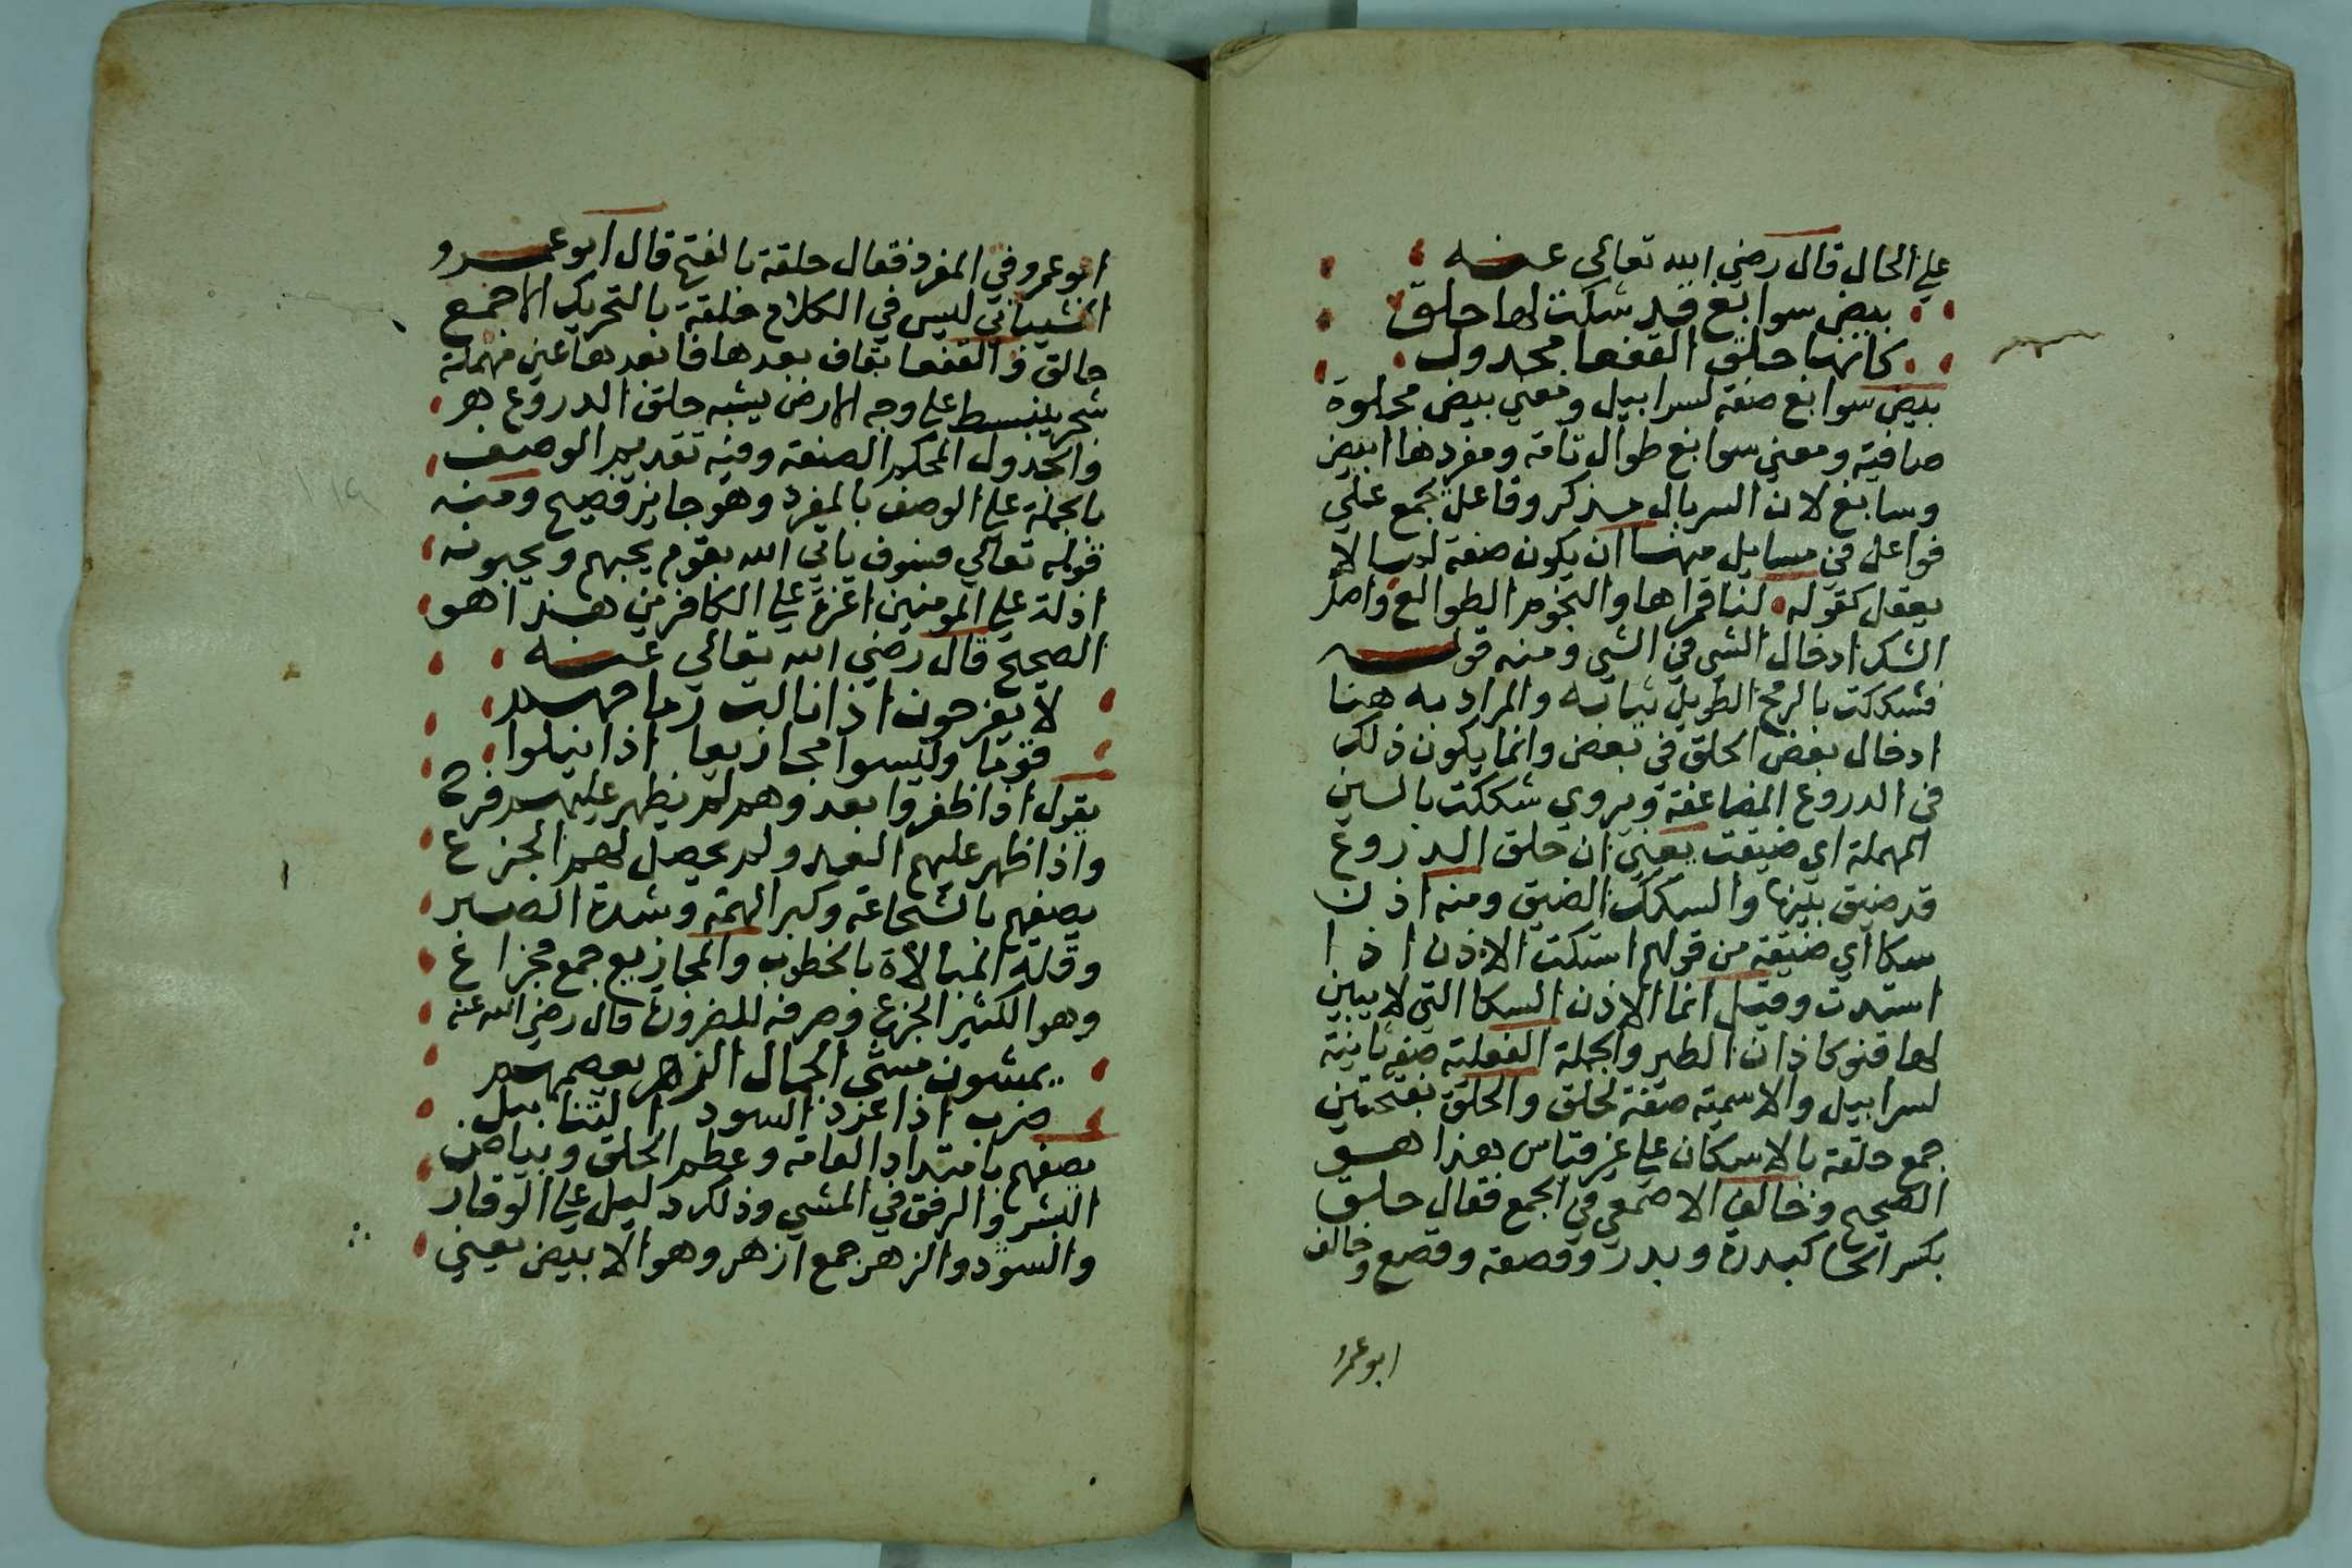 علي الحال قال رضي الله تعالي عنه
بيض سوابغ قد شكت لها حلق
كانها حلق القفعا مجدول
بيض سوابغ صفة لسرابيل ومعني بيض مجلوة
صافية ومعني سوابغ طوال تامة ومفردها ابيض
وسابغ لان السربال مذكر وفاعل يجمع علي
فواعل في مسايل منها ان يكون صفة لما لا
يعقل كقوله لنا قمراها والنجوم الطوالع واصل
الشك ادخال الشي في الشي ومنه قوله
فشككت بالرمح الطويل ثيابه والمراد به هنا
ادخال بعض الحلق في بعض وانما يكون ذلك
في الدروع المضاعفة ويروي شككت بالسين
المهملة اي ضيقت يعني ان حلق الدروع
قد ضيق بينها والسكك الضيق ومنه اذن
سكا اي ضيقة من قولهم استكت الاذن اذا
استدت وقيل انما الاذن السكا التي لا يبين
لها قنو كاذان الطير والجملة الفعلية صفة ثانية
لسرابيل والاسمية صفة لحلق والحلق بفتحتين
جمع حلقة بالاسكان علي غير قياس هذا هو
الصحيح وخالف الاصمعي في الجمع فقال حلق
بكسر الحا كبدرة وبدر وقصعة وقصع وخالف
ابو عمر
ابو عمرو في المفرد فقال حلقة بالفتح قال ابو عمرو
الشيباني ليس في الكلام حلقة بالتحريك الا جمع
حالق والقفعا بقاف بعدها فا بعدها عين مهملة
شجر ينبسط علي وجه الارض يشبه حلق الدروع هر
والمجدول المحكم الصنعة وفيه تقديم الوصف
بالجملة علي الوصف بالمفرد وهو جايز فصيح ومنه
قوله تعالي فسوف ياتي الله بقوم يحبهم ويحبونه
اذلة علي المومنين اعزة علي الكافرين هذا هو
الصحيح قال رضي الله تعالي عنه
لا يفرحون اذا نالت رماحهم
قوما وليسوا مجازيعا اذا نيلوا
يقول اذا ظفروا بعدوهم لم يظهر عليهم فرح
واذا ظهر عليهم العدو لم يحصل لهم الجزع
يصفهم بالشجاعة وكبر الهمة وشدة الصبر
وقلة المبالاة بالخطوب والمجازيع جمع مجزاع
وهو الكثير الجزع وصرفه للضرورة قال رضي الله عنه
يمشون مشي الجمال الزهر يعصمهم
ضرب اذا عرد السود التنابيل
يصفهم بامتداد القامة وعظم الخلق وبياض
البشر والرفق في المشي وذلك دليل علي الوقار
والسودد والزهر جمع ازهر وهو الابيض يعني